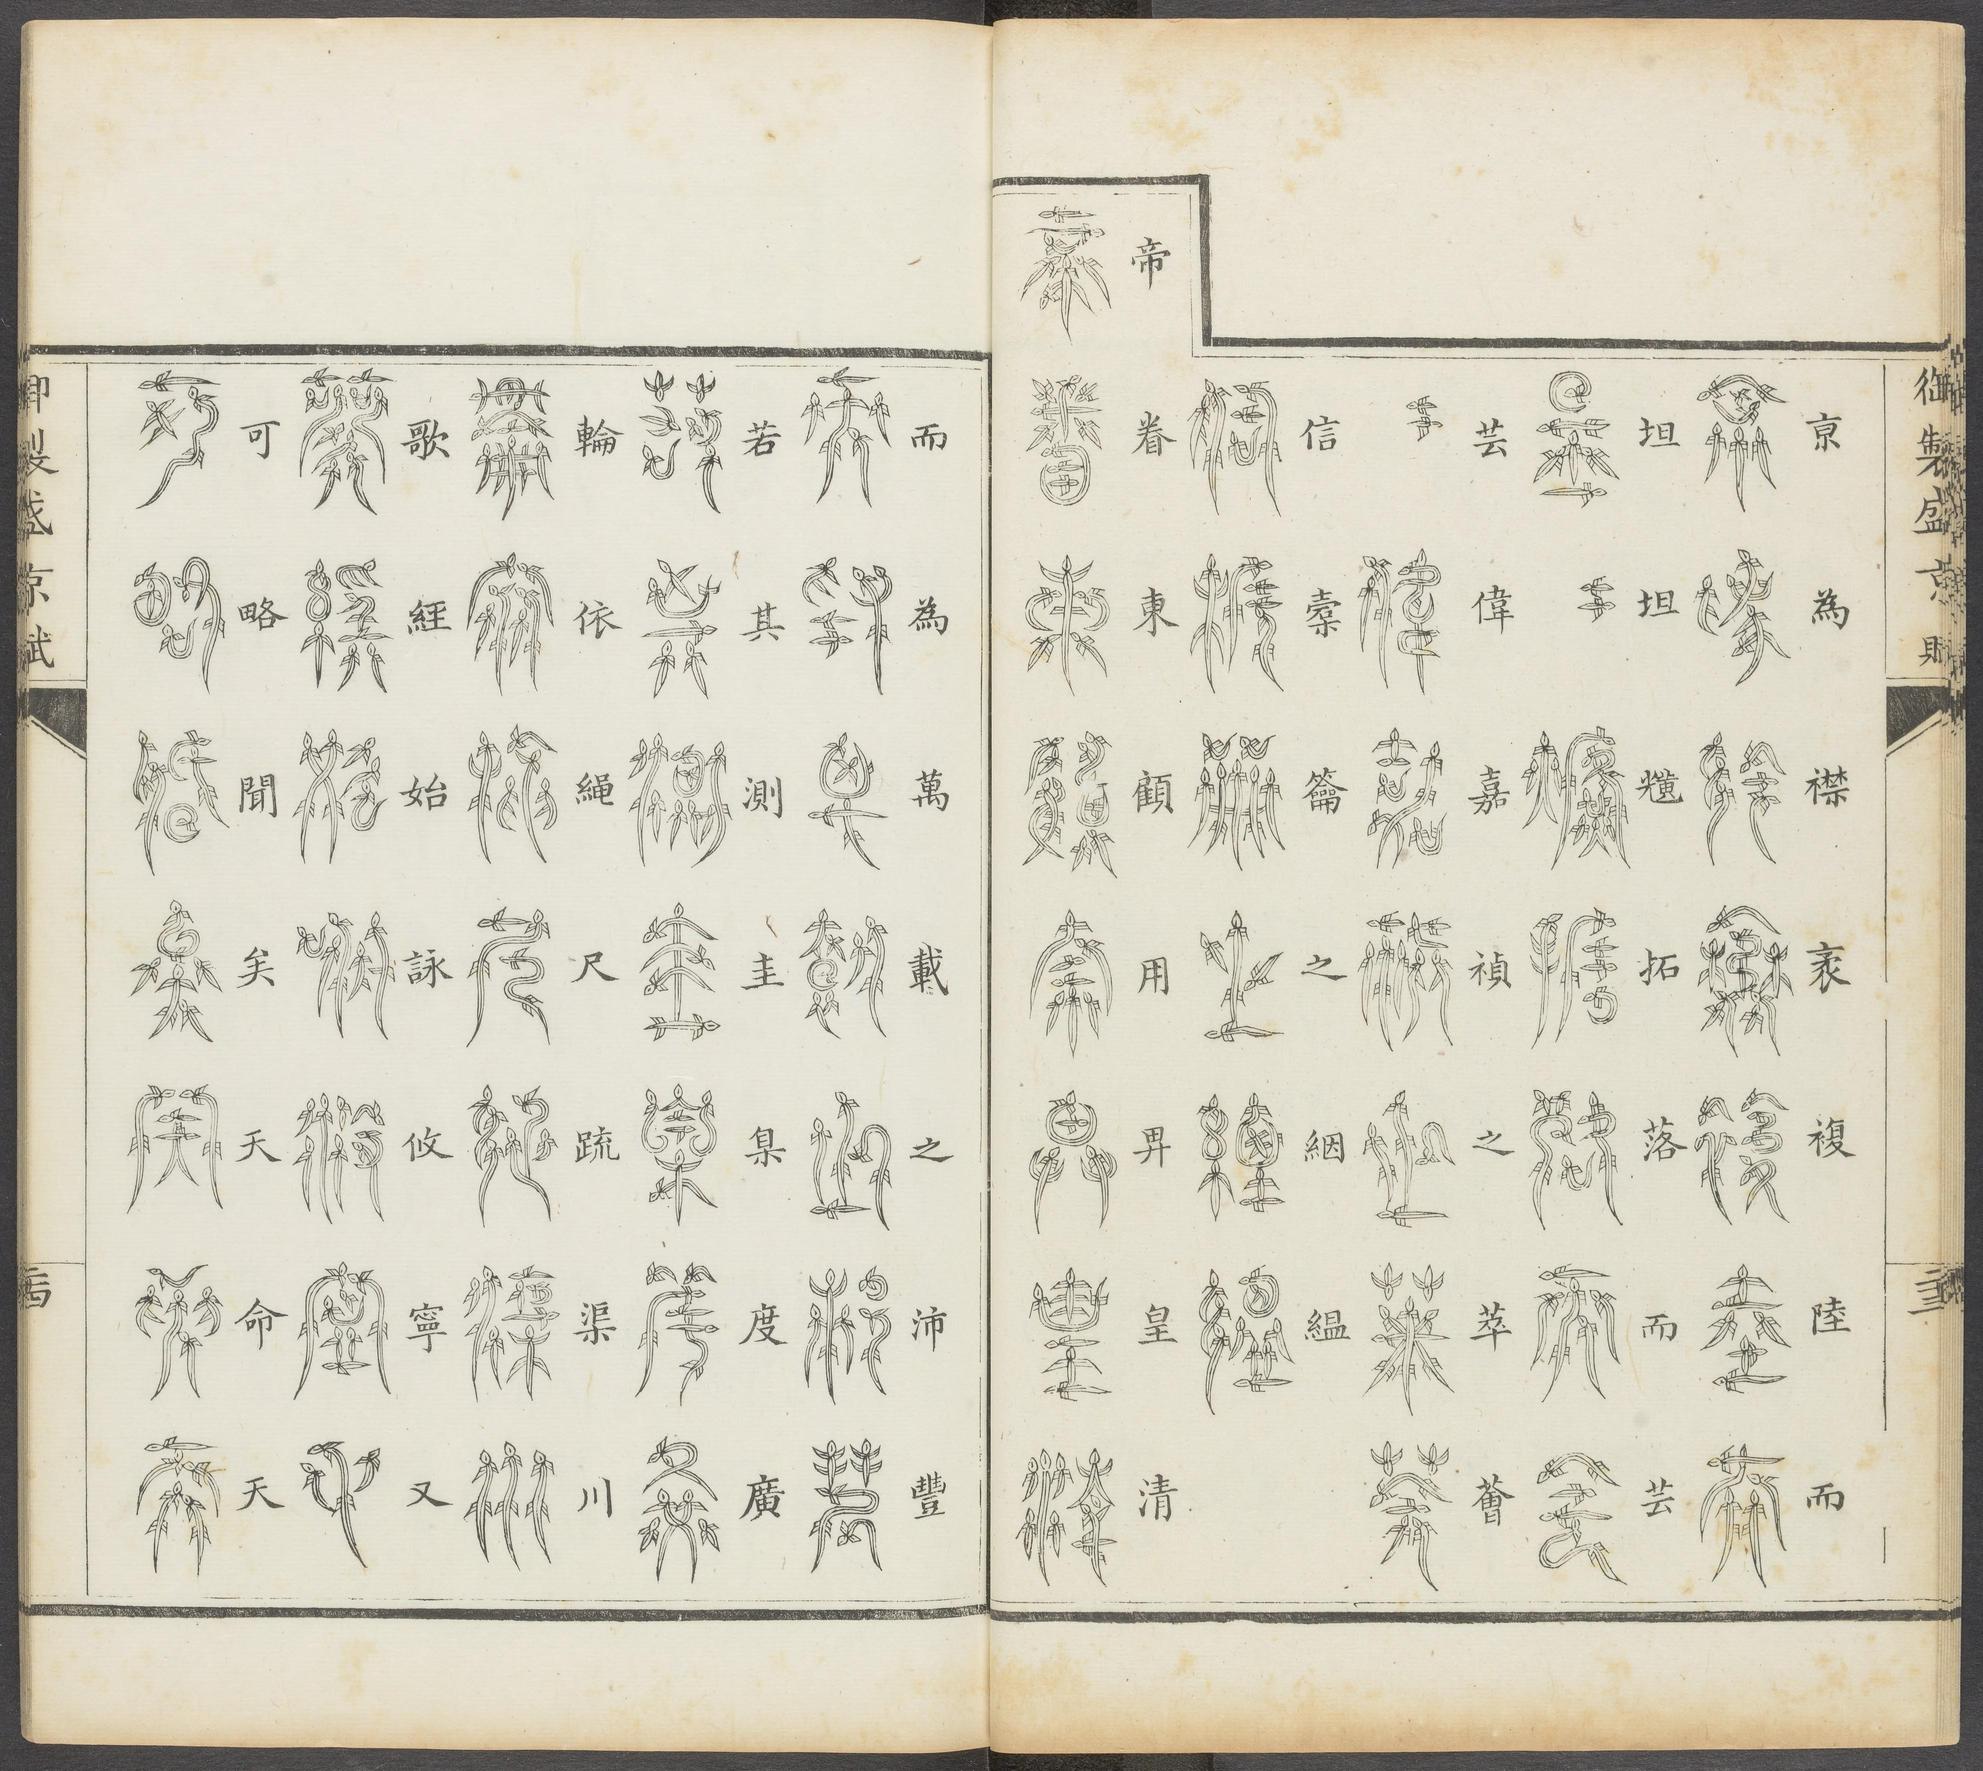 御製盛京賦
三
京為襟袤複陸而
坦坦爌拓落而芸
芸偉嘉禎之萃薈
信橐籥之絪縕
帝眷東顧用畀皇清
而為萬載之沛豐
若其測圭臬度廣
輪依繩尺疏渠川
歌經始詠攸寧又
可略聞矣天命天
御製盛京賦